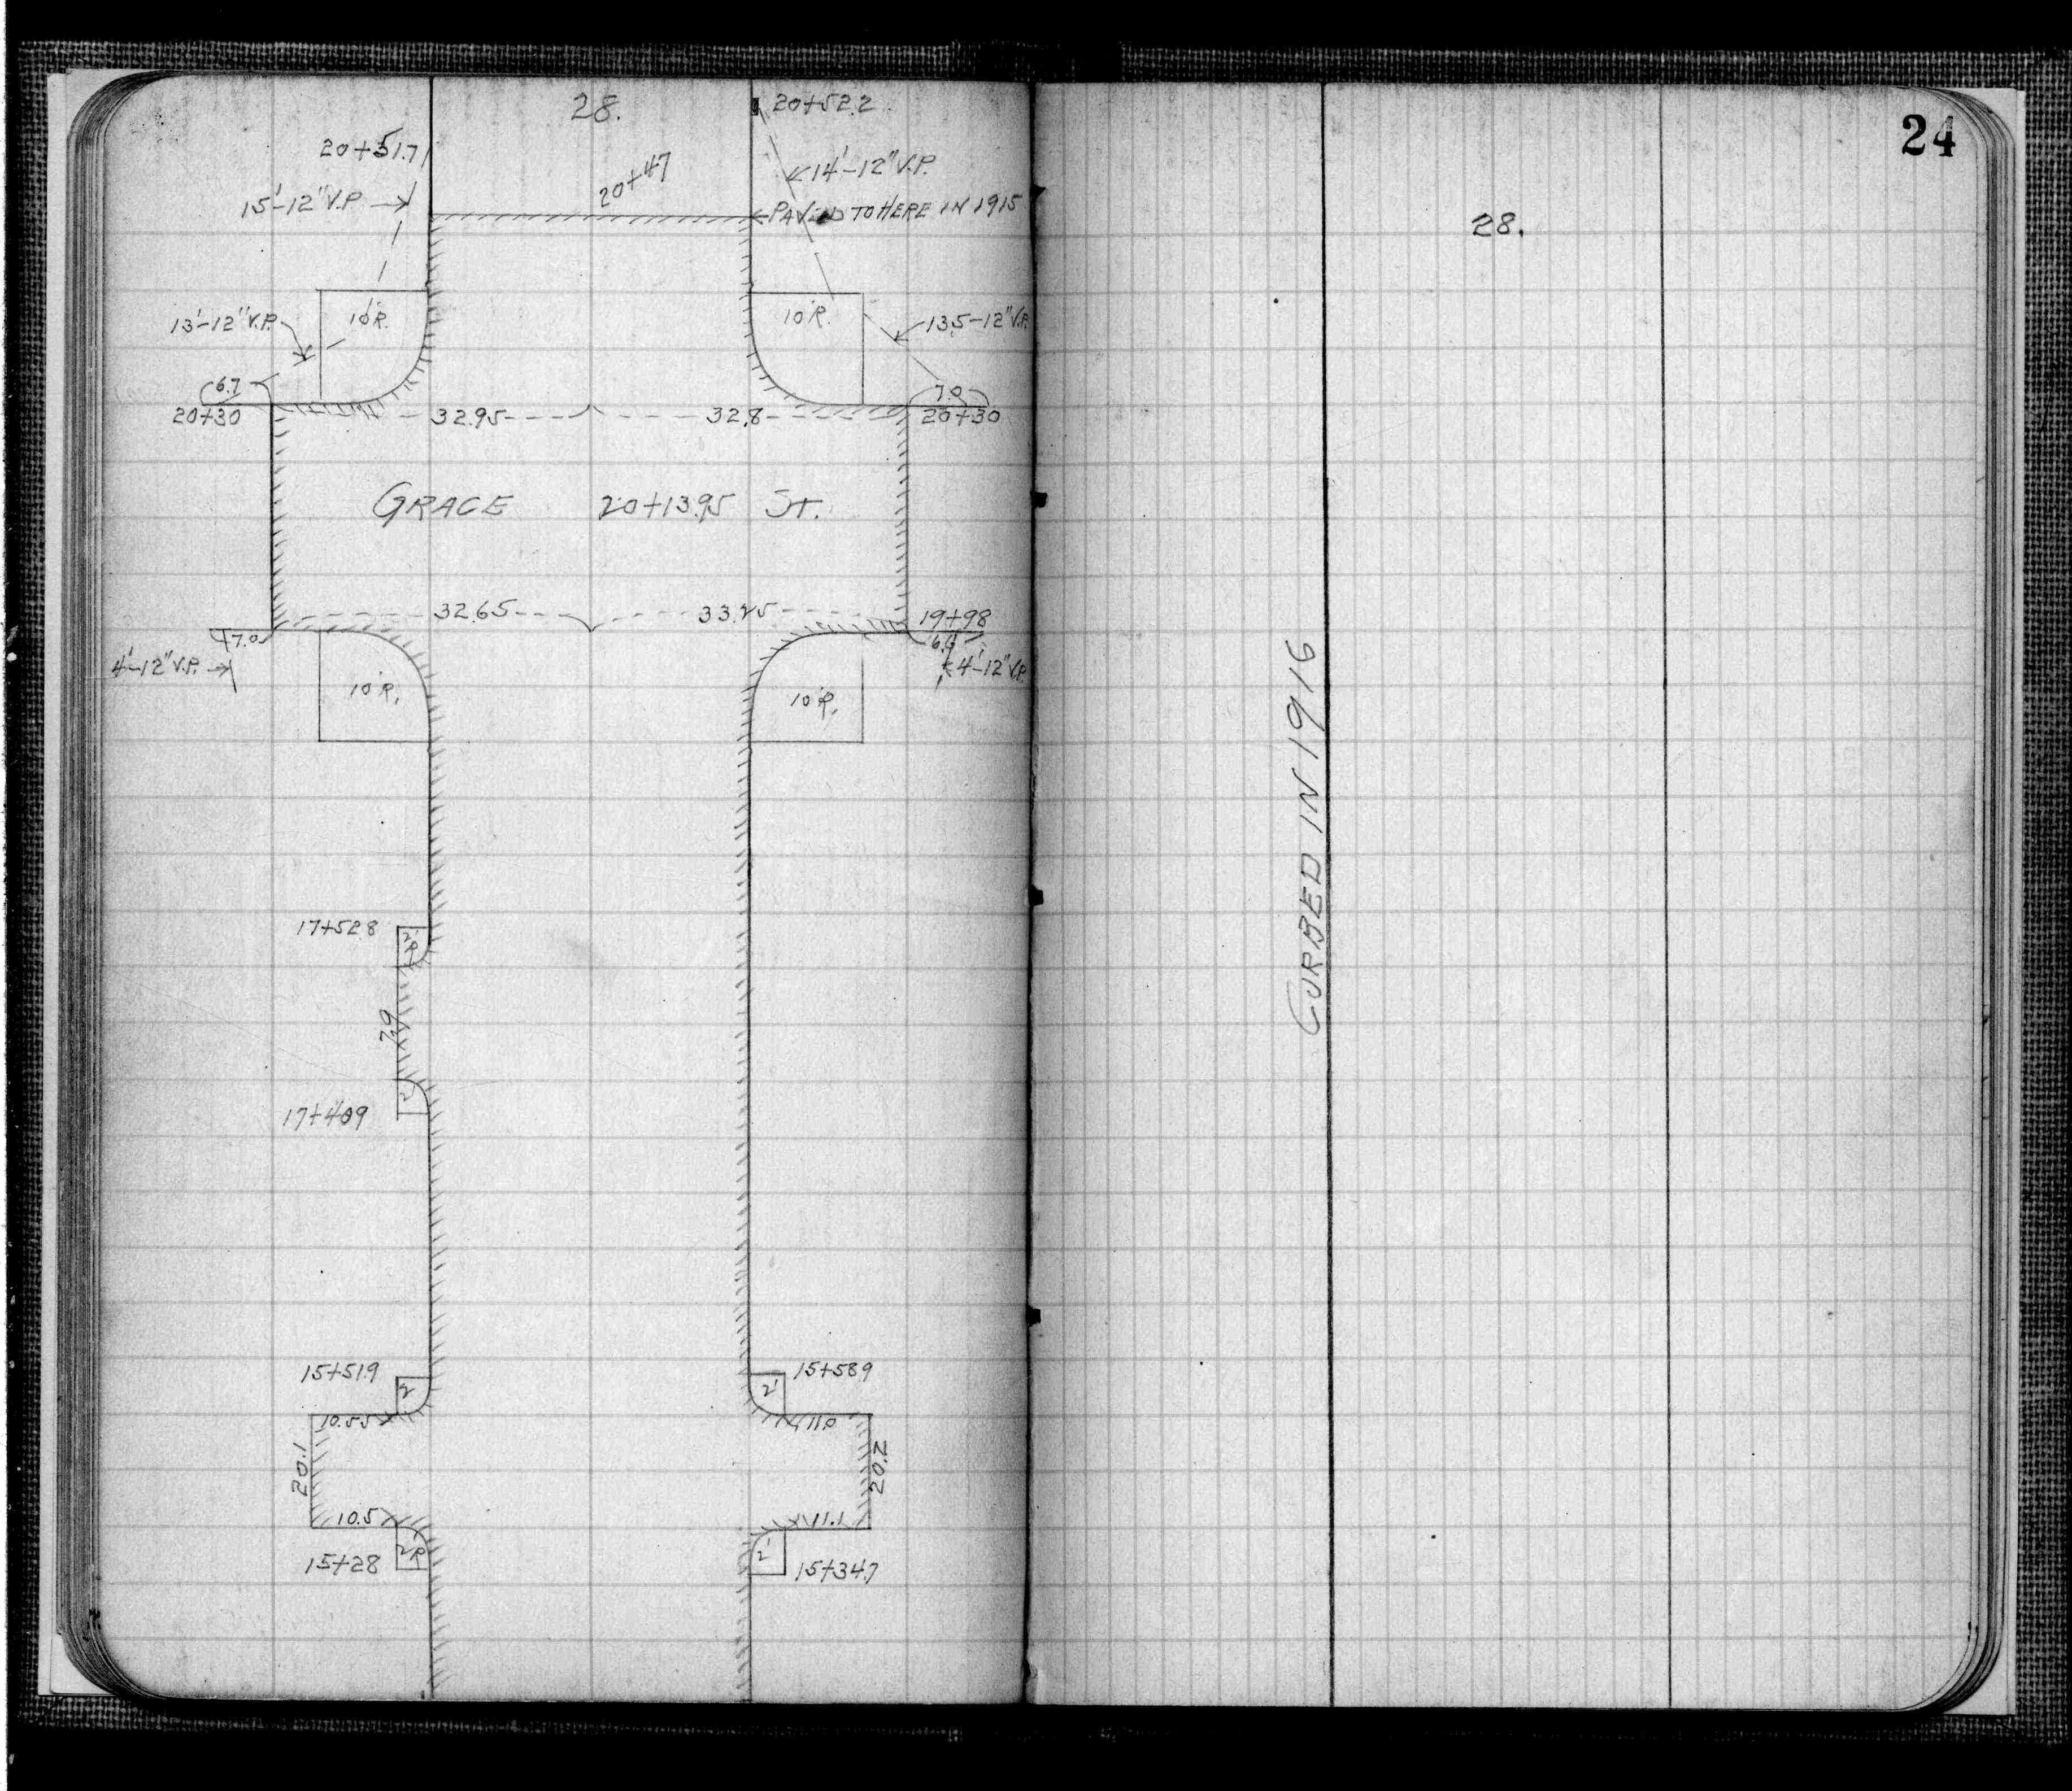 28.
20+52.2
20+51.7
14'-12" V.P.
20+47
15'-12" V.P.
PAVED TO HERE IN 1915
10'R.
10'R.
13'-12" V.P.
13.5-12" V.P.
6.7
7.0
20+30
32.95
32.8
20+30
GRACE 20+13.95 ST.
32.65
33.25
19+98
7.0
4'-12" V.P.
4'-12" V.P.
10'R.
10'R.
17+52.8
2'R
7.9
2'
17+40.9
15+51.9
2'
2'
15+58.9
10.55
11.0
20.1
20.2
10.5
11.1
2'R
2'
15+28
15+34.7
24
28.
CURBED IN 1916